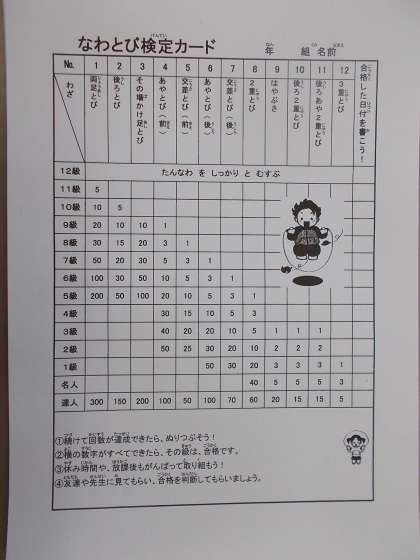 なわとび検定カード
年 組 名前
No. 1 2 3 4 5 6 7 8 9 10 11 12 合格した日付を書こう!
わざ 両足とび 後ろとび その場かけ足とび あやとび(前) 交差とび(前) あやとび(後) 交差とび(後) 2重とび はやぶさ 後ろ2重とび 後ろあや2重とび 3重とび
12級 たんなわ を しっかり と むすぶ
11級 5
10級 10 5
9級 20 10 10 1
8級 30 15 20 3 1
7級 50 20 30 5 3 1
6級 100 30 50 10 5 3 1
5級 200 50 100 20 10 5 3 1
4級 30 15 10 5 3
3級 40 20 20 10 5 1 1 1
2級 50 25 30 20 10 2 2 2
1級 50 30 20 3 3 3 1
名人 40 5 5 5 3
達人 300 150 200 100 50 100 70 60 20 15 15 5
①続けて回数が達成できたら、ぬりつぶそう!
②横の数字がすべてできたら、その級は、合格です。
③休み時間や、放課後もがんばって取り組もう!
④友達や先生に見てもらい、合格を判断してもらいましょう。